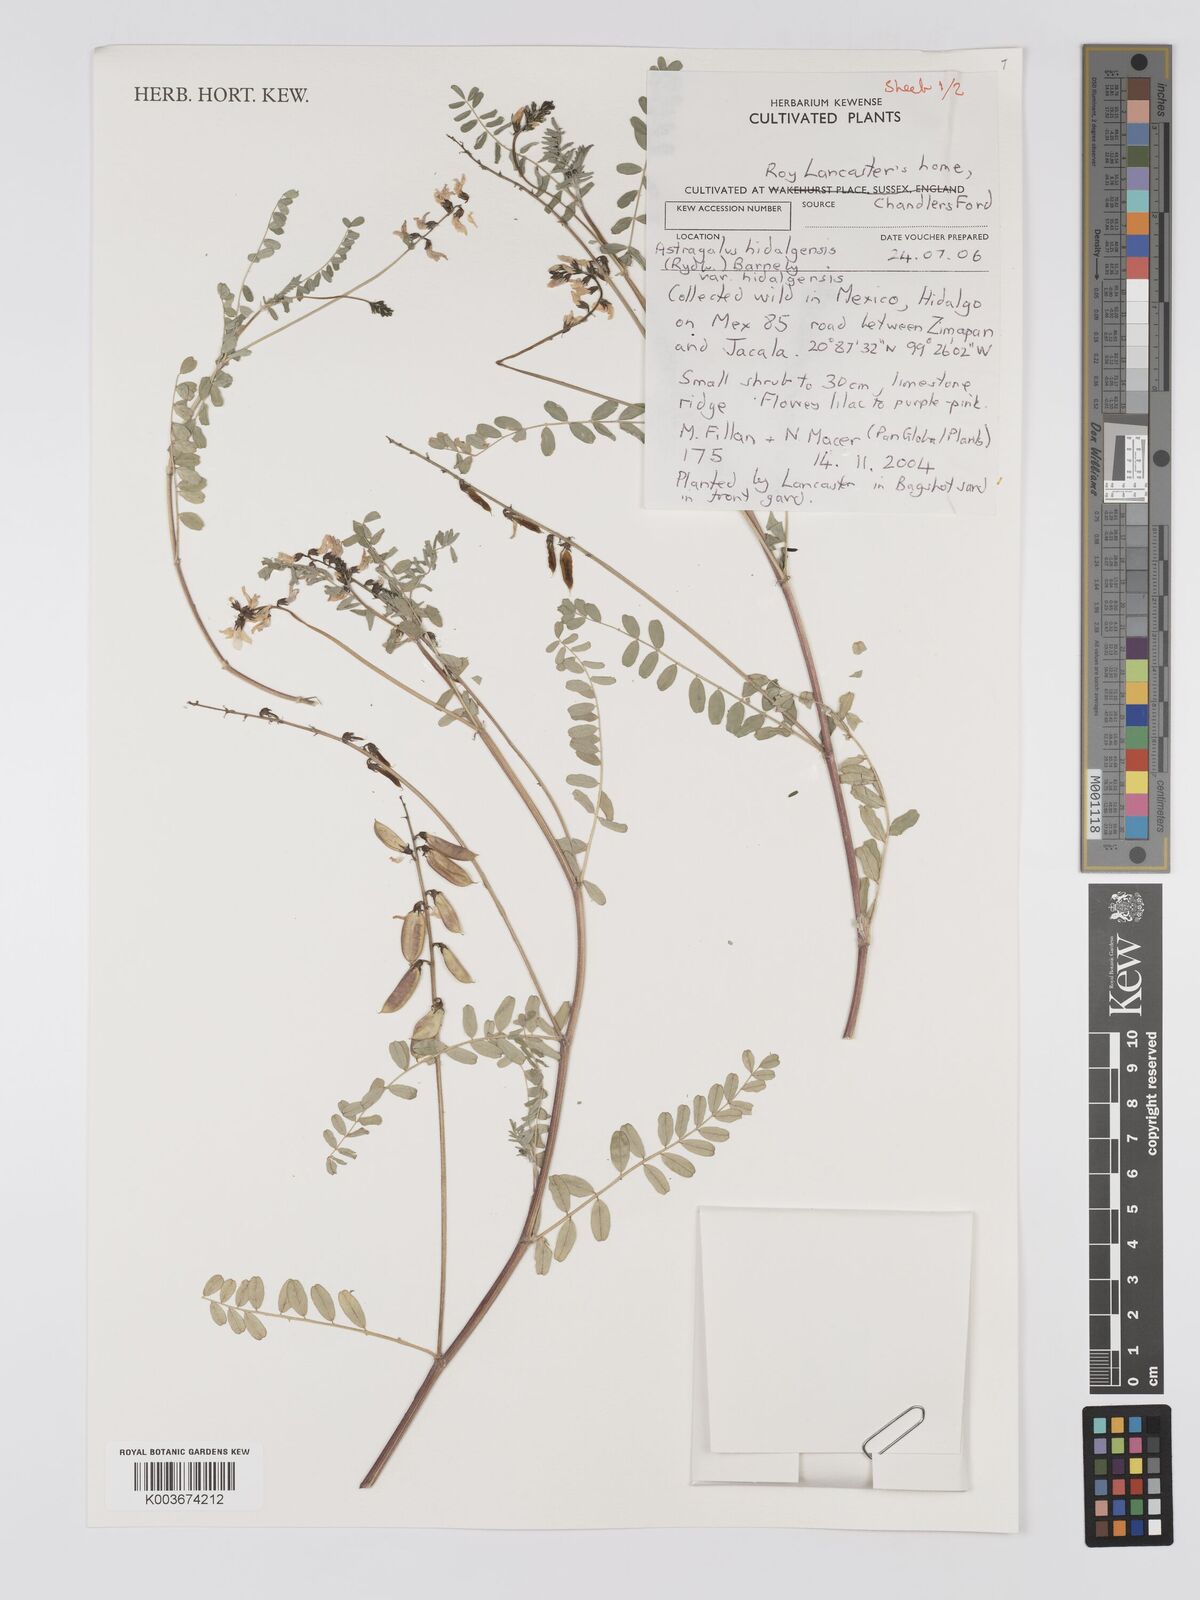 HERB. HORT. KEW.
Sheet 1/2
HERBARIUM KEWENSE
CULTIVATED PLANTS
Roy Lancaster's home,
CULTIVATED AT WAKEHURST PLACE, SUSSEX, ENGLAND
KEW ACCESSION NUMBER
SOURCE
Chandlers Ford
LOCATION
DATE VOUCHER PREPARED
Astragalus hidalgensis
24.07.06
(Rydb.) Barneby
var. hidalgensis
Collected wild in Mexico, Hidalgo
on Mex 85 road between Zimapan
and Jacala. 20°87'32"N 99°26'02"W
Small shrub to 30cm, limestone
ridge. Flowers lilac to purple-pink.
M. Fillan + N Macer (PanGlobal Plants)
175 14. 11. 2004
Planted by Lancaster in Bagshot sand
in front gard.
inches
Density
Don Williams
M001118
centimetres
Royal Botanic Gardens
Kew
copyright reserved
0 1 2 3 4 5 6 7 8 9 10
cm
ROYAL BOTANIC GARDENS KEW
K003674212